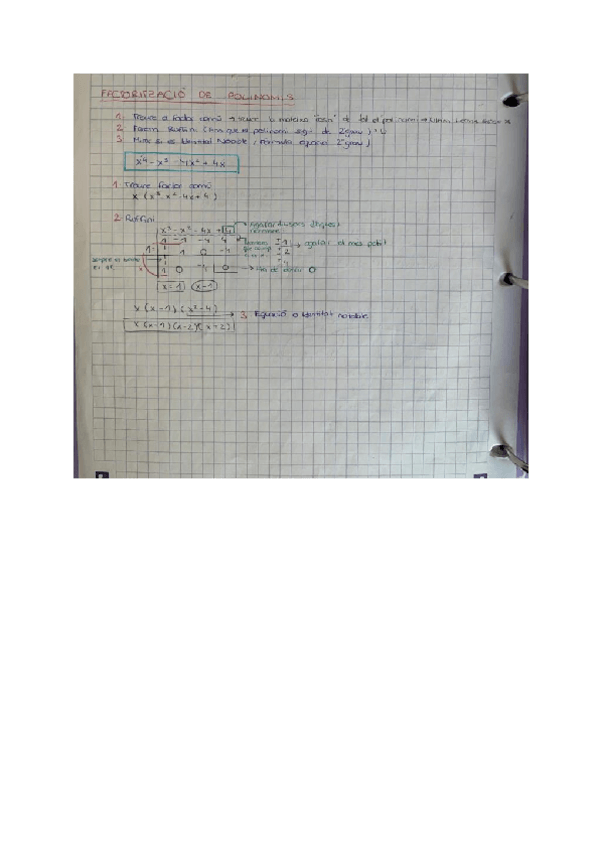 FACTORITZACIÓ DE POLINOMIS
1. Treure el factor comú → treure la mateixa "cosa" de tot el polinomi
2. Fem Ruffini (fins que el polinomi sigui de 2 grau)
3. Mirar si es Identitat Notable / Fórmula equació 2 grau
x⁴ - x³ - 4x² + 4x
1. Treure factor comú
x (x³ - x² - 4x + 4)
2. Ruffini
x³ - x² - 4x + 4 → agafar divisors
1 -1 -4 4
±1 → agafar el més petit
±2
±4
1 1 0 -4
1 0 -4 0 → Ha de donar 0
x = 1 x - 1
x (x - 1) (x² - 4) → 3. Equació o Identitat notable
x (x - 1) (x - 2) (x + 2)